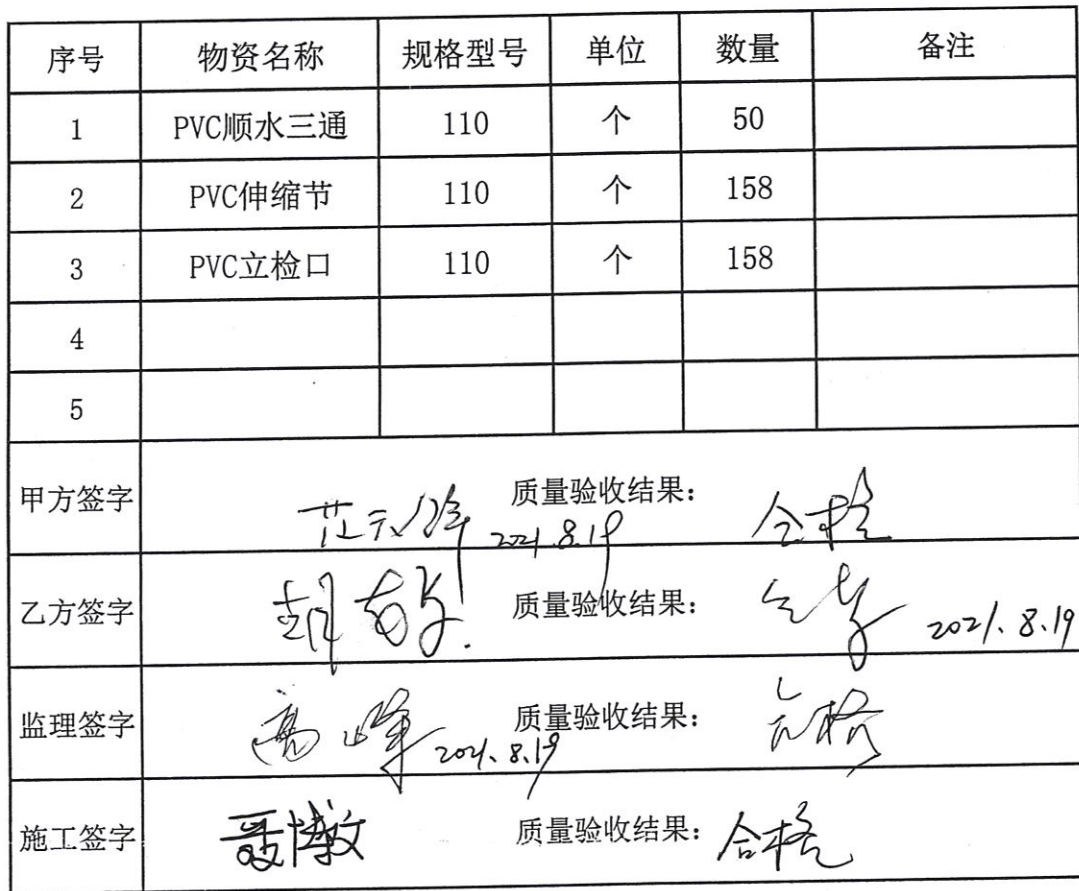 序号 物资名称 规格型号 单位 数量 备注
1 PVC顺水三通 110 个 50
2 PVC伸缩节 110 个 158
3 PVC立检口 110 个 158
4
5
甲方签字 质量验收结果: 合格
2021.8.19
乙方签字 质量验收结果: 合格 2021.8.19
监理签字 高峰 2021.8.19 质量验收结果: 合格
施工签字 聂博文 质量验收结果: 合格